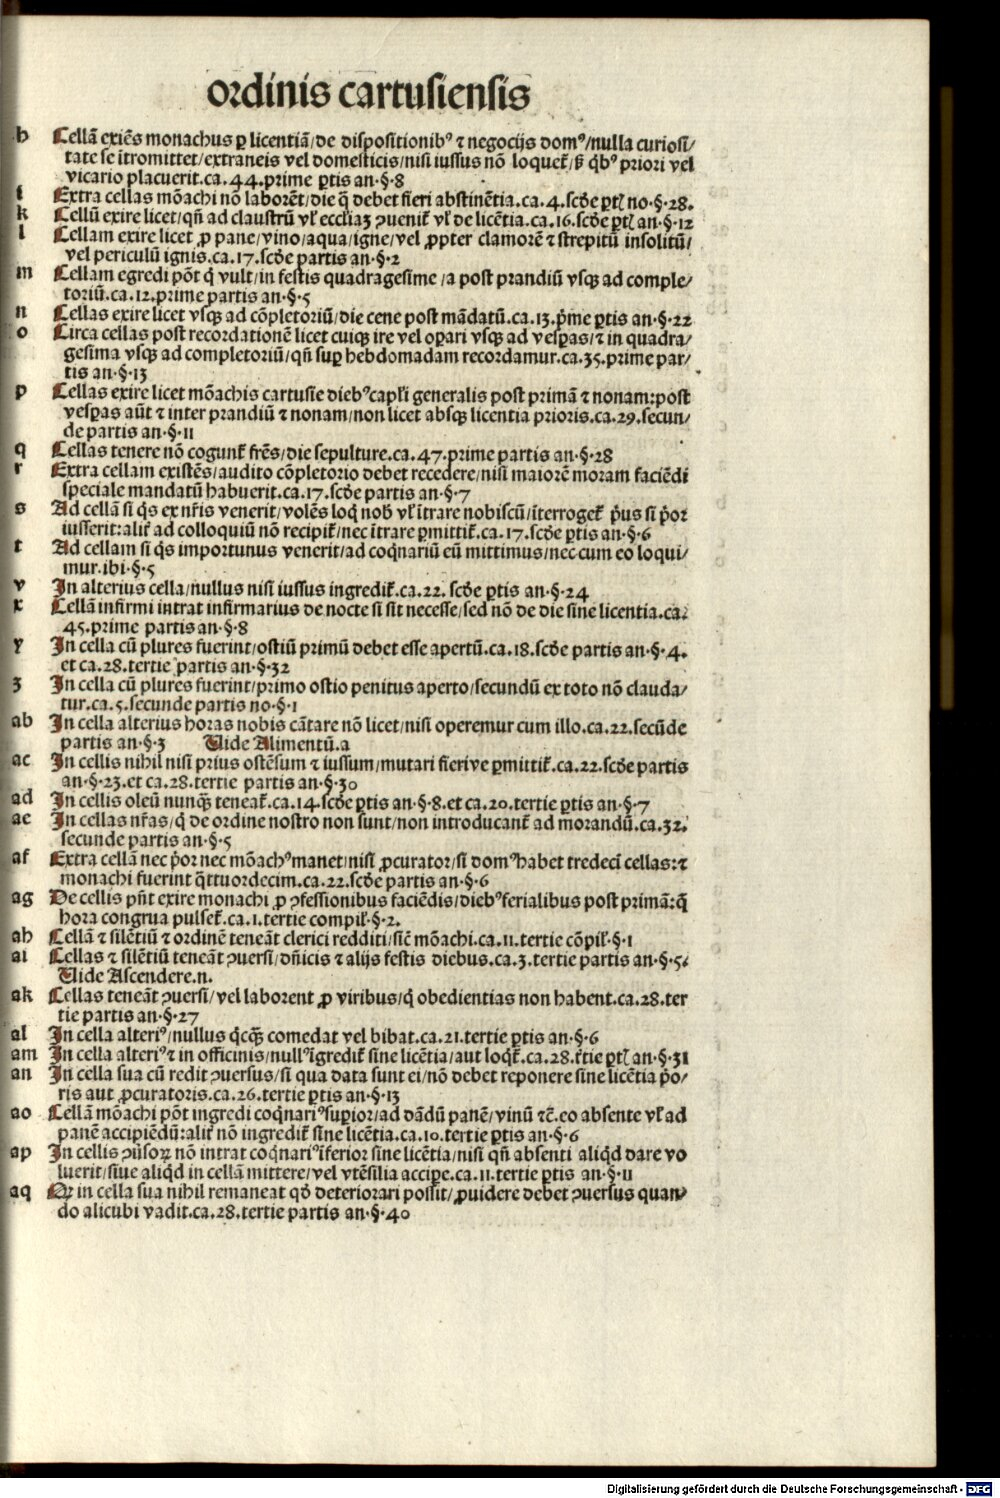 ordinis cartusiensis
h Cellã exiẽs monachus ꝑ licentiã/de dispositionibꝰ ⁊ negocijs domꝰ/nulla curiosi/
tate se ĩtromittet/extraneis vel domesticis/nisi iussus nõ loquet̃/ꝭ q̇bꝰ priori vel
vicario placuerit.ca.44.prime ꝑtis an.§.8
i Extra cellas mõachi nõ laborẽt/die q̃ debet fieri abstinẽtia.ca.4.scđe ꝑtꝭ no.§.28.
k Cellũ exire licet/qñ ad claustrũ vl̃ eccliaꝫ ꝯuenit̃ vl̃ de licẽtia.ca.16.scđe ꝑtꝭ an.§.12
l Cellam exire licet ꝓ pane/vino/aqua/igne/vel ꝓpter clamorẽ ⁊ strepitũ insolitũ/
vel periculũ ignis.ca.17.scđe partis an.§.2
m Cellam egredi põt q̇ vult/in festis quadragesime/a post prandiũ vsqꝫ ad comple/
toriũ.ca.12.prime partis an.§.5
n Cellas exire licet vsqꝫ ad cõpletoriũ/die cene post mãdatũ.ca.13.p̃me ꝑtis an.§.22
o Circa cellas post recordationẽ licet cuiqꝫ ire vel oꝑari vsqꝫ ad vesꝑas/⁊ in quadra/
gesima vsqꝫ ad completoriũ/qñ suꝑ hebdomadam recordamur.ca.35.prime par/
tis an.§.13
p Cellas exire licet mõachis cartusie diebꝰcapl̃i generalis post primã ⁊ nonam:post
vesꝑas aũt ⁊ inter prandiũ ⁊ nonam/non licet absqꝫ licentia prioris.ca.29.secun/
de partis an.§.11
q Cellas tenere nõ cogunt̃ fr̃es/die sepulture.ca.47.prime partis an.§.28
r Extra cellam existẽs/audito cõpletorio debet recedere/nisi maiorẽ moram faciẽdi
speciale mandatũ habuerit.ca.17.scđe partis an.§.7
s Ad cellã si q̇s ex nr̃is venerit/volẽs loq̇ nob̃ vl̃ ĩtrare nobiscũ/ĩterroget̃ p̃us si p̃or
iusserit:alit̃ ad colloquiũ nõ recipit̃/nec ĩtrare ꝑmittit̃.ca.17.scđe ꝑtis an.§.6
t Ad cellam si q̇s importunus venerit/ad coq̇nariũ eũ mittimus/nec cum eo loqui/
mur.ibi.§.5
v In alterius cella/nullus nisi iussus ingredit̃.ca.22.scđe ꝑtis an.§.24
x Cellã infirmi intrat infirmarius de nocte si sit necesse/sed nõ de die sine licentia.ca.
45.prime partis an.§.8
y In cella cũ plures fuerint/ostiũ primũ debet esse apertũ.ca.18.scđe partis an.§.4.
et ca.28.tertie partis an.§.32
z In cella cũ plures fuerint/primo ostio penitus aperto/secundũ ex toto nõ clauda/
tur.ca.5.secunde partis no.§.1
ab In cella alterius horas nobis cãtare nõ licet/nisi operemur cum illo.ca.22.secũde
partis an.§.3 Uide Alimentũ.a
ac In cellis nihil nisi prius ostẽsum ⁊ iussum/mutari fierive ꝑmittit̃.ca.22.scđe partis
an.§.23.et ca.28.tertie partis an.§.30
ad In cellis oleũ nunqꝫ̃ teneat̃.ca.14.scđe ꝑtis an.§.8.et ca.20.tertie ꝑtis an.§.7
ae In cellas nr̃as/q̇ de ordine nostro non sunt/non introducant̃ ad morandũ.ca.32.
secunde partis an.§.5
af Extra cellã nec p̃or nec mõachꝰmanet/nisi ꝓcurator/si domꝰhabet tredeci cellas:⁊
monachi fuerint q̃ttuordecim.ca.22.scđe partis an.§.6
ag De cellis pñt exire monachi ꝓ ꝯfessionibus faciẽdis/diebꝰferialibus post primã:q̃
hora congrua pulset̃.ca.1.tertie compil̃.§.2.
ah Cellã ⁊ silẽtiũ ⁊ ordinẽ teneãt clerici redditi/sic̃ mõachi.ca.11.tertie cõpil̃.§.1
ai Cellas ⁊ silẽtiũ teneãt ꝯuersi/dñicis ⁊ alijs festis diebus.ca.3.tertie partis an.§.5.
Uide Ascendere.n.
ak Cellas teneãt ꝯuersi/vel laborent ꝓ viribus/q̇ obedientias non habent.ca.28.ter
tie partis an.§.27
al In cella alteriꝰ/nullus q̇cqꝫ̃ comedat vel bibat.ca.21.tertie ꝑtis an.§.6
am In cella alteriꝰ⁊ in officinis/nullꝰĩgredit̃ sine licẽtia/aut loqt̃.ca.28.t̃tie ꝑtꝭ an.§.31
an In cella sua cũ redit ꝯuersus/si qua data sunt ei/nõ debet reponere sine licẽtia p̃o/
ris aut ꝓcuratoris.ca.26.tertie ꝑtis an.§.13
ao Cellã mõachi põt ingredi coq̇nariꝰsuꝑior/ad dãdũ panẽ/vinũ ⁊c̃.eo absente vl̃ ad
panẽ accipiẽdũ:alit̃ nõ ingredit̃ sine licẽtia.ca.10.tertie ꝑtis an.§.6
ap In cellis ꝯũsoꝝ nõ intrat coq̇nariꝰĩferior sine licẽtia/nisi qñ absenti aliq̇d dare vo
luerit/siue aliq̇d in cellã mittere/vel vtẽsilia acciꝑe.ca.11.tertie ꝑtis an.§.11
aq Ne in cella sua nihil remaneat qđ deteriorari possit/ꝓuidere debet ꝯuersus quan/
do alicubi vadit.ca.28.tertie partis an.§.40
Digitalisierung gefördert durch die Deutsche Forschungsgemeinschaft - DFG